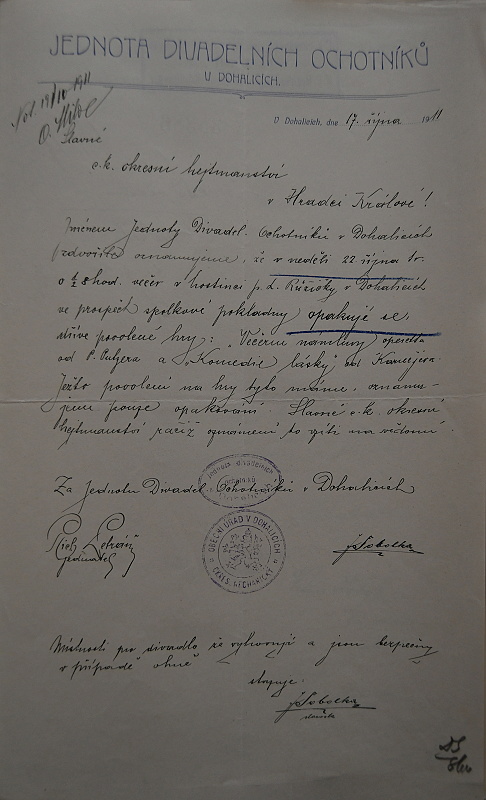 JEDNOTA DIVADELNÍCH OCHOTNÍKŮ
V DOHALICÍCH.
19/10 1911
V Dohalicích, dne 17. října 1911
Slavné
c. k. okresní hejtmanství
v Hradci Králové!
Jménem Jednoty Divadel. Ochotníků v Dohalicích
zdvořile oznamujeme, že v neděli 22. října t.r.
o ½ 8 hod. večer v hostinci p. J. Růžičky v Dohalicích
ve prospěch spolkové pokladny opakuje se
dříve povolené hry: „Večerní námluvy" opereta
od a „Komedie lásky" od
Ježto povolení na hry tyto máme, oznamu-
jem pouze opakování. Slavné c. k. okresní
hejtmanství račiž oznámení to vzíti na vědomí.
Za Jednotu Divadel. Ochotníků v Dohalicích
jednatel
J Sobotka
OBECNÍ ÚŘAD V DOHALICÍCH
OKRES. NECHANICKÝ
Místnosti pro divadlo že vyhovují a jsou bezpečny
v případě ohně
J Sobotka
starosta